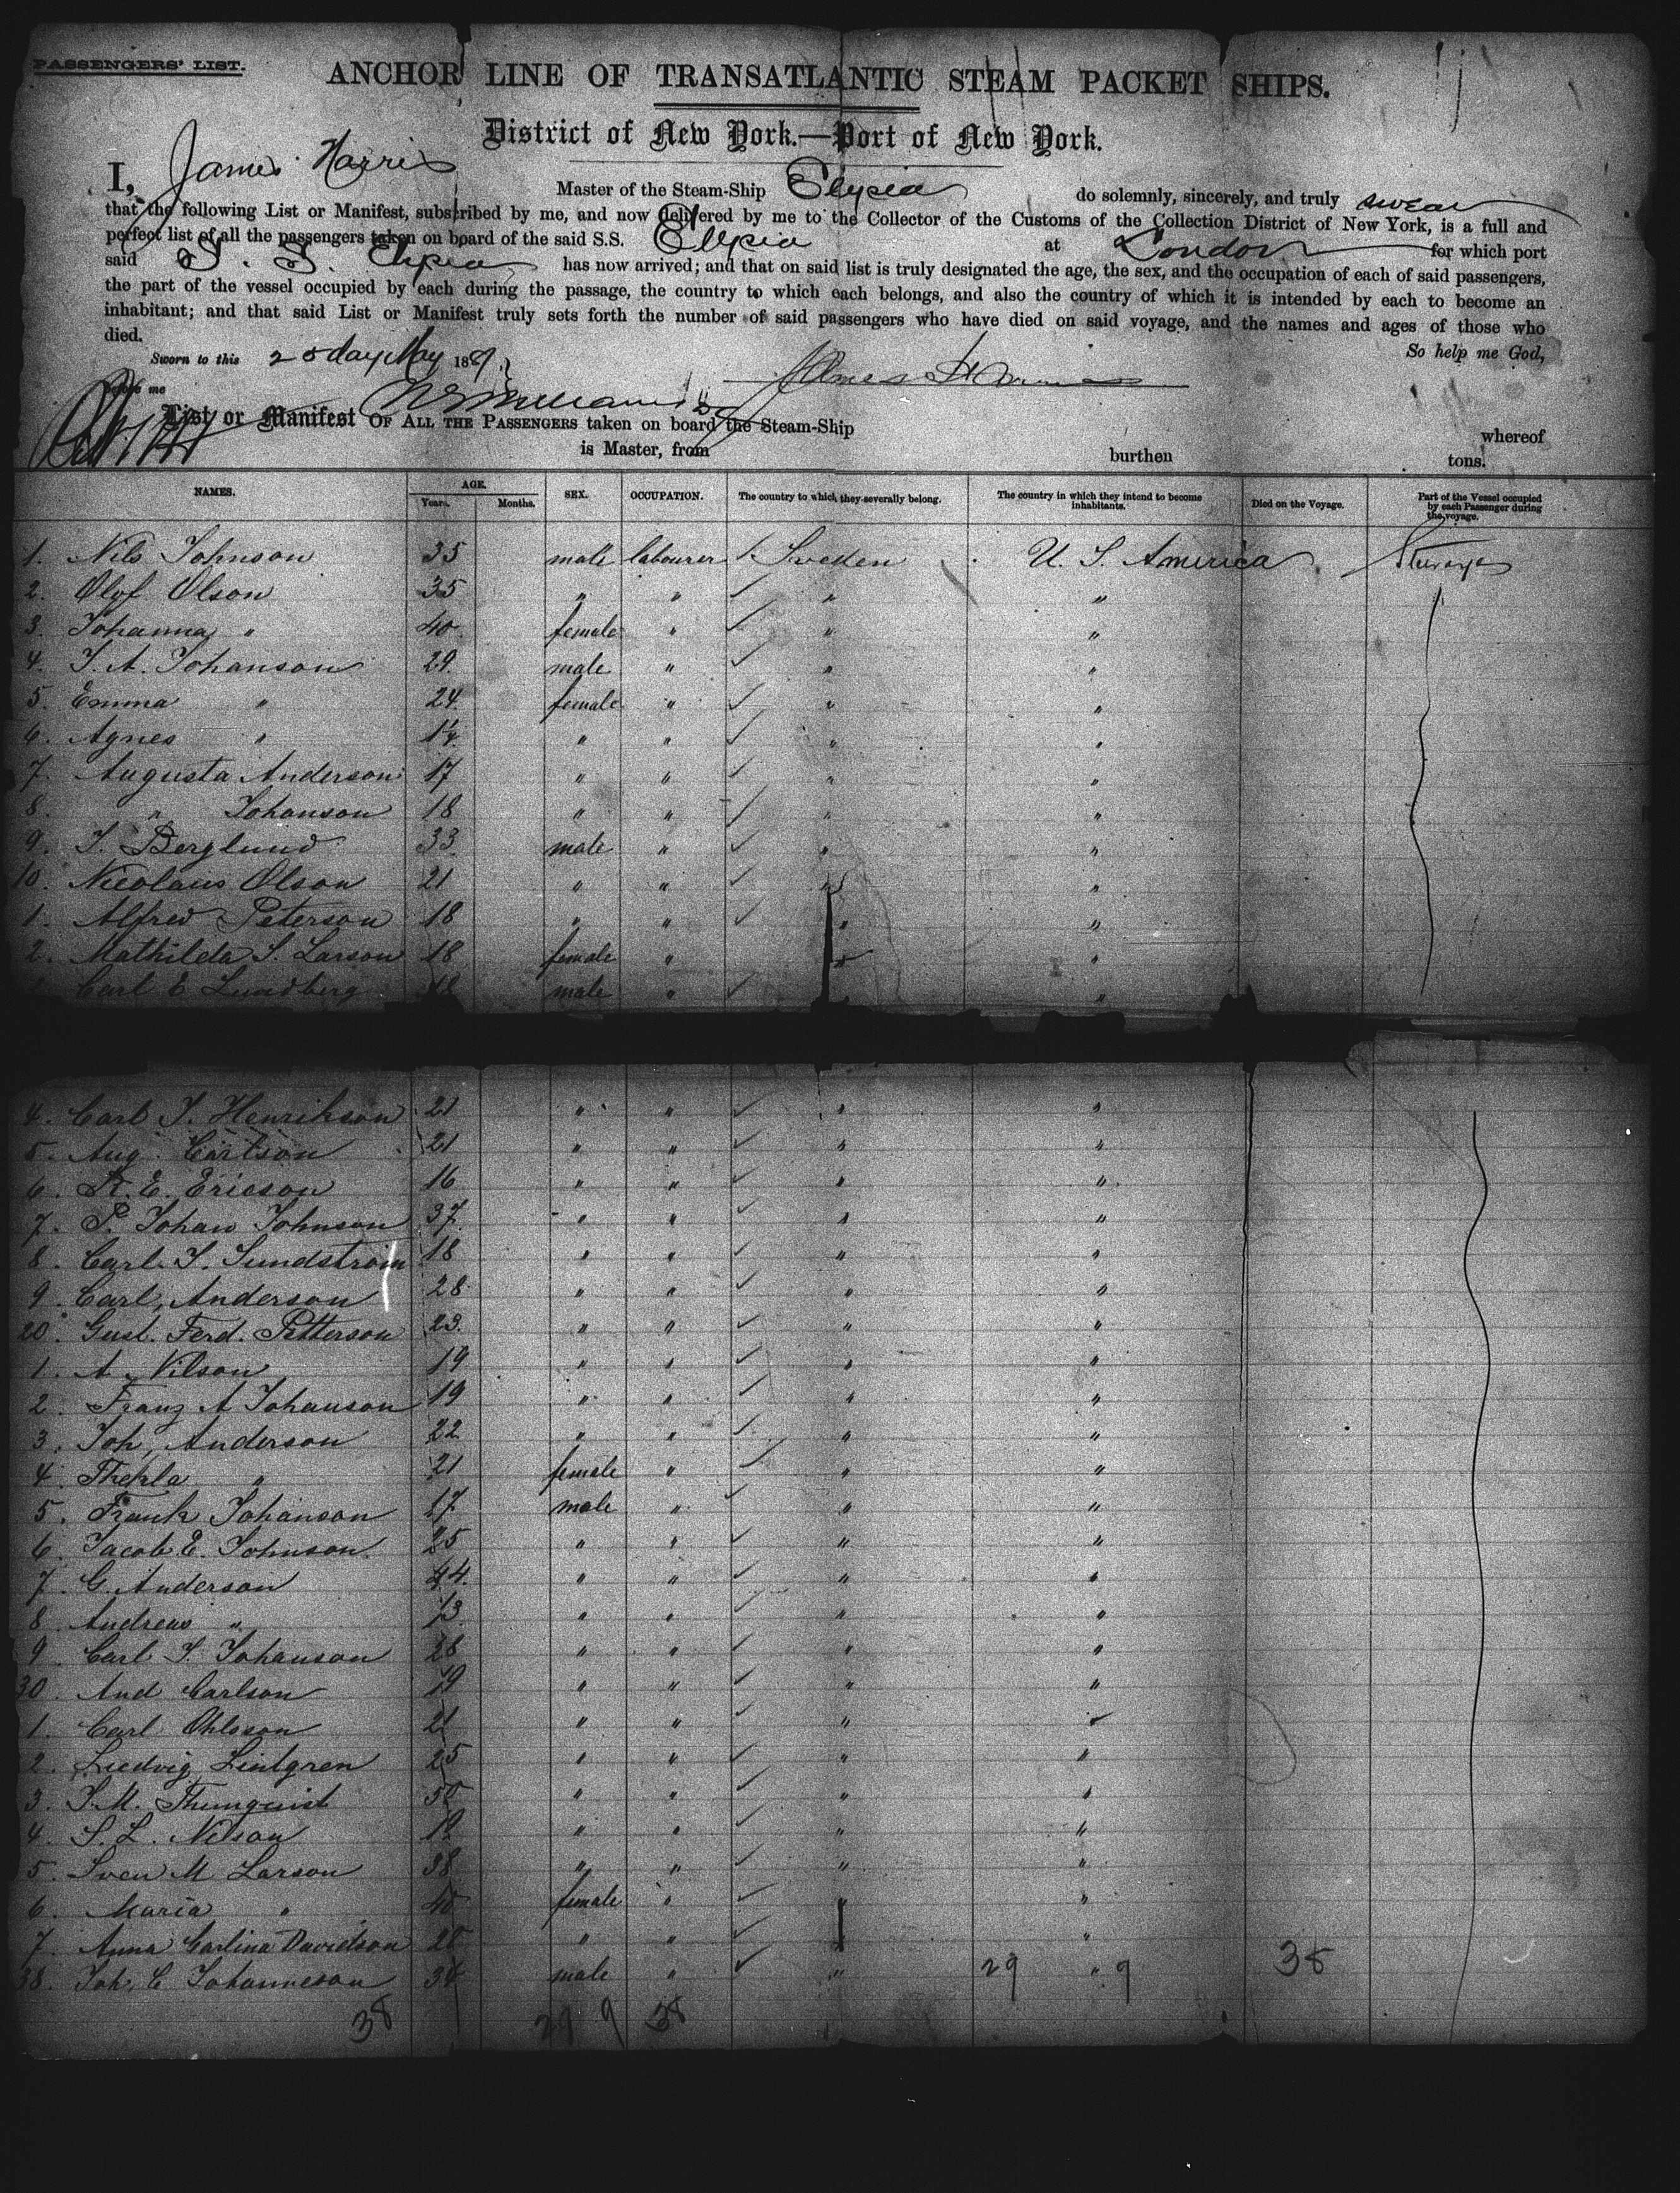 PASSENGERS' LIST.
ANCHOR LINE OF TRANSATLANTIC STEAM PACKET SHIPS.
District of New York.—Port of New York.
I, James Harris Master of the Steam-Ship Elysia do solemnly, sincerely, and truly swear
that the following List or Manifest, subscribed by me, and now delivered by me to the Collector of the Customs of the Collection District of New York, is a full and
perfect list of all the passengers taken on board of the said S.S. Elysia at London for which port
said S. S. Elysia has now arrived; and that on said list is truly designated the age, the sex, and the occupation of each of said passengers,
the part of the vessel occupied by each during the passage, the country to which each belongs, and also the country of which it is intended by each to become an
inhabitant; and that said List or Manifest truly sets forth the number of said passengers who have died on said voyage, and the names and ages of those who
died. So help me God,
Sworn to this day May 188 James Harris
before me
List or Manifest OF ALL THE PASSENGERS taken on board the Steam-Ship whereof
is Master, from burthen tons.
NAMES. AGE. Years. Months. SEX. OCCUPATION. The country to which they severally belong. The country in which they intend to become inhabitants. Died on the Voyage. Part of the Vessel occupied by each Passenger during the voyage.
1. Nils Johnson 35 male labourer ✓ Sweden U. S. America Steerage
2. Olof Olson 35 " " ✓ " "
3. Johanna " 40 female " ✓ " "
4. J. A. Johanson 29 male " ✓ " "
5. Emma " 24 female " ✓ " "
6. Agnes " " " ✓ " "
7. Augusta Anderson 17 " " ✓ " "
8. " Johanson 18 " " ✓ " "
9. J. Berglund 33 male " ✓ " "
10. Nicolaus Olson 21 " " ✓ " "
1. Alfred Peterson 18 " " ✓ " "
2. Mathilda S. Larson 18 female " " "
Carl E Lundberg 18 male " ✓ "
4. Carl J. Henrikson 21 " " ✓ " "
5. Aug. Carlson 21 " " ✓ " "
6. E. Ericson 16 " " ✓ " "
7. P. Johan Johnson 37 " " ✓ " "
8. Carl J. Sundstrom 18 " " ✓ " "
9. Carl Anderson 28 " " ✓ " "
20. Gust. Ferd. Petterson 23 " " ✓ " "
1. A. Nilson 19 " " ✓ " "
2. Franz A Johanson 19 " " ✓ " "
3. Joh, Anderson 22 " " ✓ " "
4. Thekla " 21 female " ✓ " "
5. Frank Johanson 17 male " ✓ " "
6. Jacob E. Johnson 25 " " ✓ " "
7. G. Anderson 44 " " ✓ " "
8. Andreas " 13 " " ✓ " "
9. Carl J. Johanson 28 " " ✓ " "
30. And Carlson 19 " " ✓ " "
1. Carl Ohlsson 21 " " " "
2. Ludvig Lintgren 25 " " ✓ " "
3. J. M. Thunquist " " ✓ " "
4. S. L. Nelson 19 " " ✓ " "
5. Sven M Larson 38 " " ✓ " "
6. Maria " 40 female " ✓ " "
7. Anna Carlina Davidson " " ✓ "
38. Joh. C Johanneson male " ✓ " 29 " 9 38
38 29 9 38